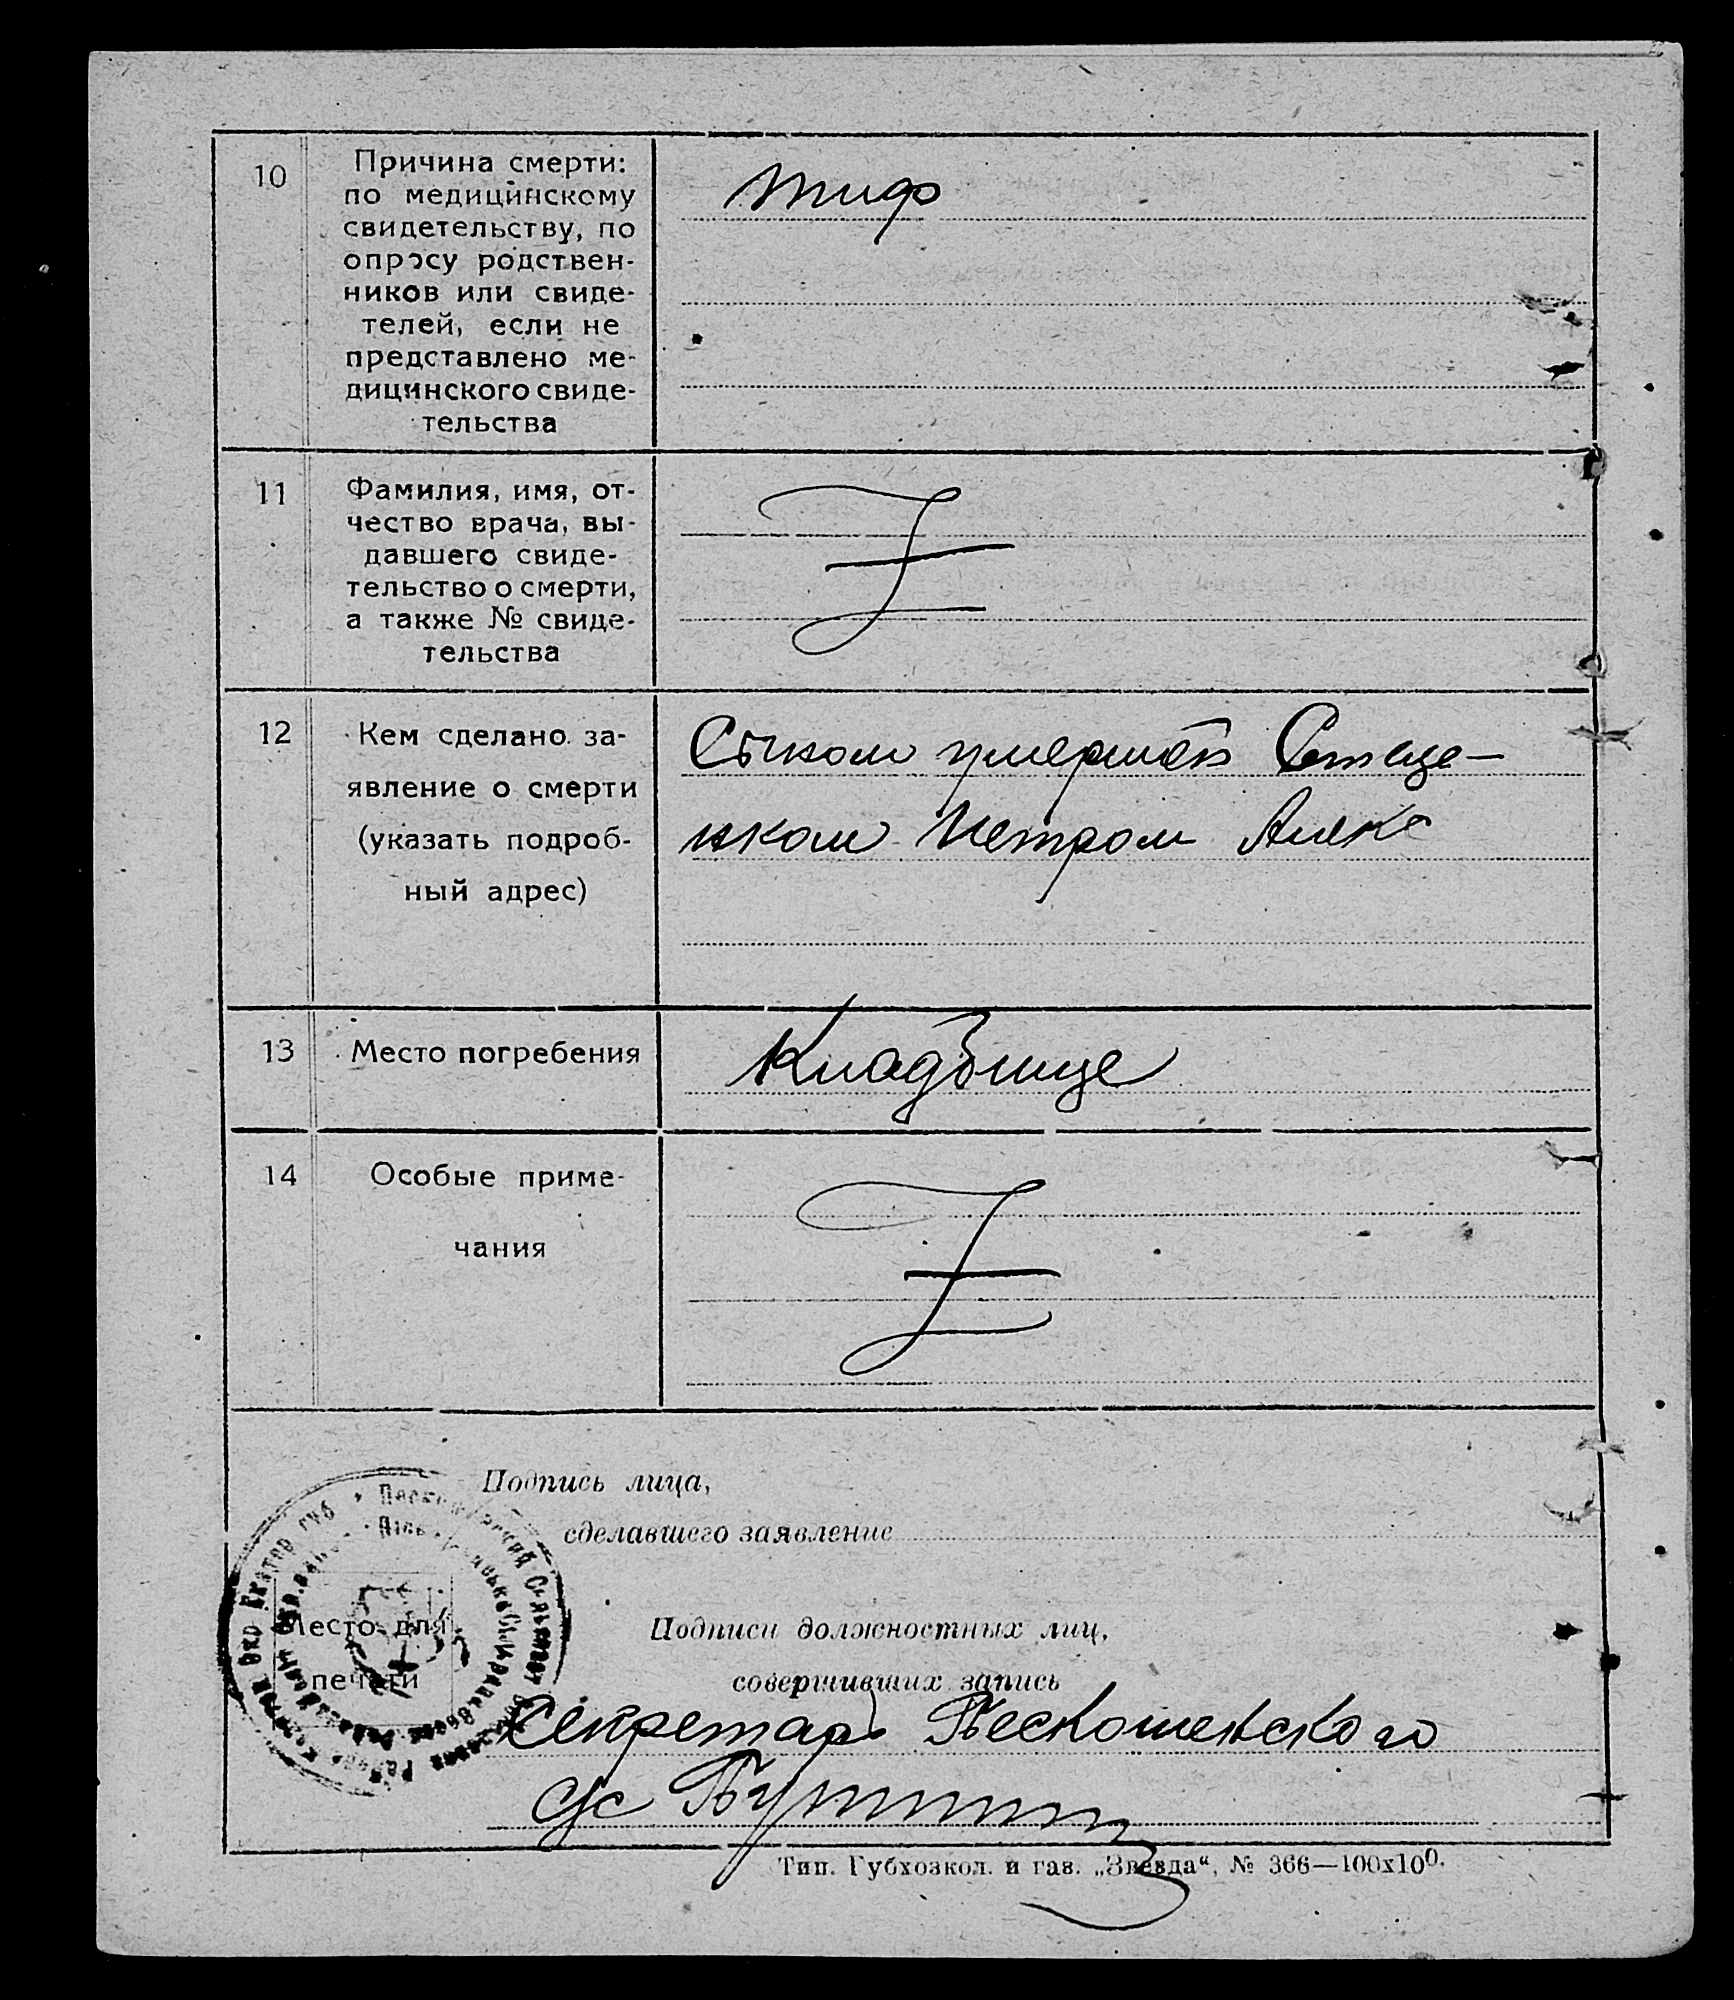 10
Причина смерти:
по медицинскому
свидетельству, по
опросу родствен-
ников или свиде-
телей, если не
представлено ме-
дицинского свиде-
тельства
тиф
11
Фамилия, имя, от-
чество врача, вы-
давшего свиде-
тельство о смерти,
а также № свиде-
тельства
12
Кем сделано за-
явление о смерти
(указать подроб-
ный адрес)
Сыном умершей Стаце-
нком Петром Алекс
13
Место погребения
Кладбище
14
Особые приме-
чания
Подпись лица,
сделавшего заявление
Место для
печати
Подписи должностных лиц,
совершивших запись
Секретарь
с/с
Тип. Губхозкол. и газ. „Звезда“, № 366—100х100.